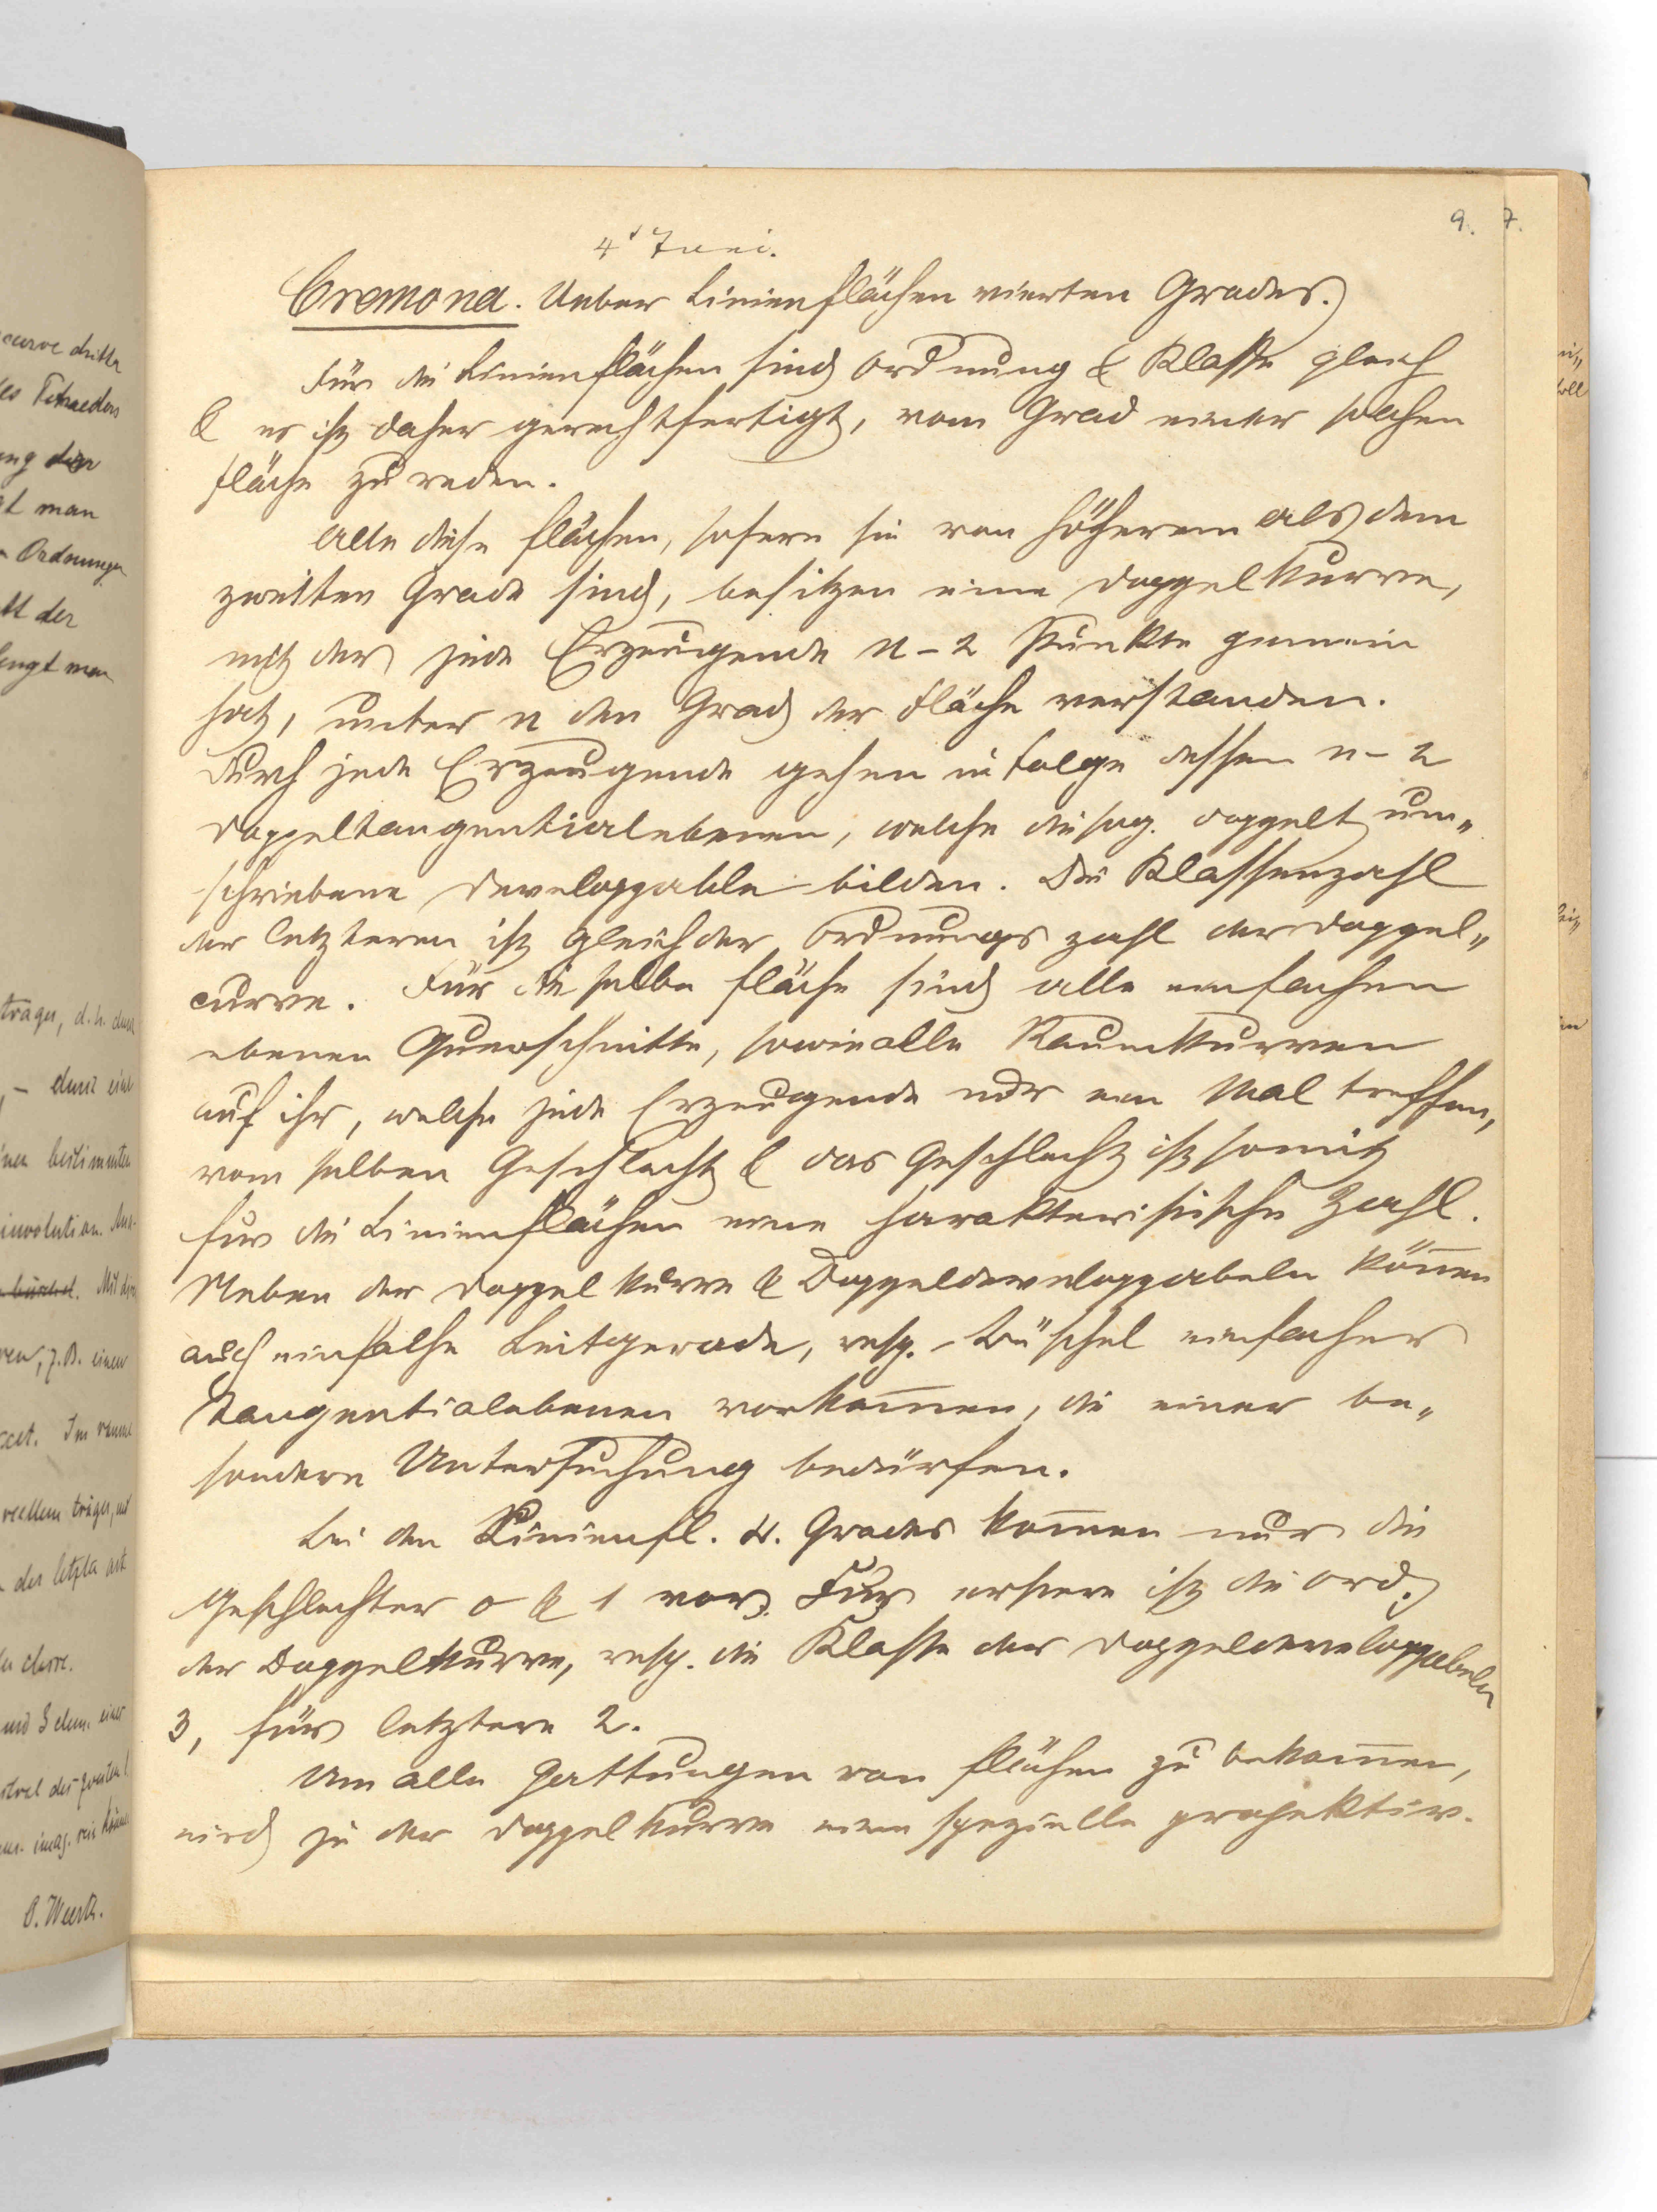 9. 7.
4' Juni.
Cremona. Ueber Linienflächen vierten Grades.
Für die Linienflächen sind Ordnung & Klasse gleich
& es ist daher gerechtfertigt, vom Grad einer solchen
Fläche zu reden.
Alle diese Flächen, sofern sie von höherem als dem
zweiten Grade sind, besitzen eine Doppelkurve,
mit der jede Erzeugende n-2 Punkte gemein
hat, unter n den Grad der Fläche verstanden.
Durch jede Erzeugende gehen in Folge dessen n-2
Doppeltangentialebenen, welche die sog. doppelt um„
schriebene Developpable bilden. Die Klassenzahl
der letzteren ist gleich der Ordnungszahl der Doppel„
curve. Für dieselbe Fläche sind alle einfachen
ebenen Querschnitte, sowie alle Raumkurven
auf ihr, welche jede Erzeugende nur ein Mal treffen,
vom selben Geschlecht & das Geschlecht ist somit
für die Linienflächen eine charakteristische Zahl.
Neben der Doppelkurve & Doppeldeveloppabeln können
auch einfache Leitgerade, resp. Büschel einfacher
Tangentialebenen vorkommen, die einer be„
sondern Untersuchung bedürfen.
Bei den Linienfl. 4. Grades kommen nur die
Geschlechter 0 & 1 vor. Für erstere ist die Ord.
der Doppelkurve, resp. die Klasse der Doppeldeveloppabeln
3, für letztere 2.
Um alle Gattungen von Flächen zu bekommen,
wird zu der Doppelkurve eine spezielle projektiv.
curve dritter
des Tetraeders
man
Ordnungen
der
trägers, d.h. durch
durch eine
bestimmten
involution.
büschel. Mit
z.B. einen
Im
reellem träger, und
der letzten art
und 3 einer
des zweiten
imag. sein können
O. Weerth.